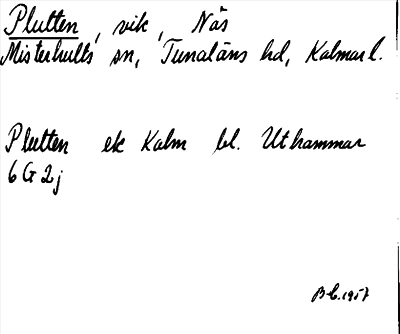 Plutten, vik, Näs
Misterhults sn, Tunaläns hd, Kalmar l.
Plutten ek Kalm bl. Uthammar
6 G 2 j
1957